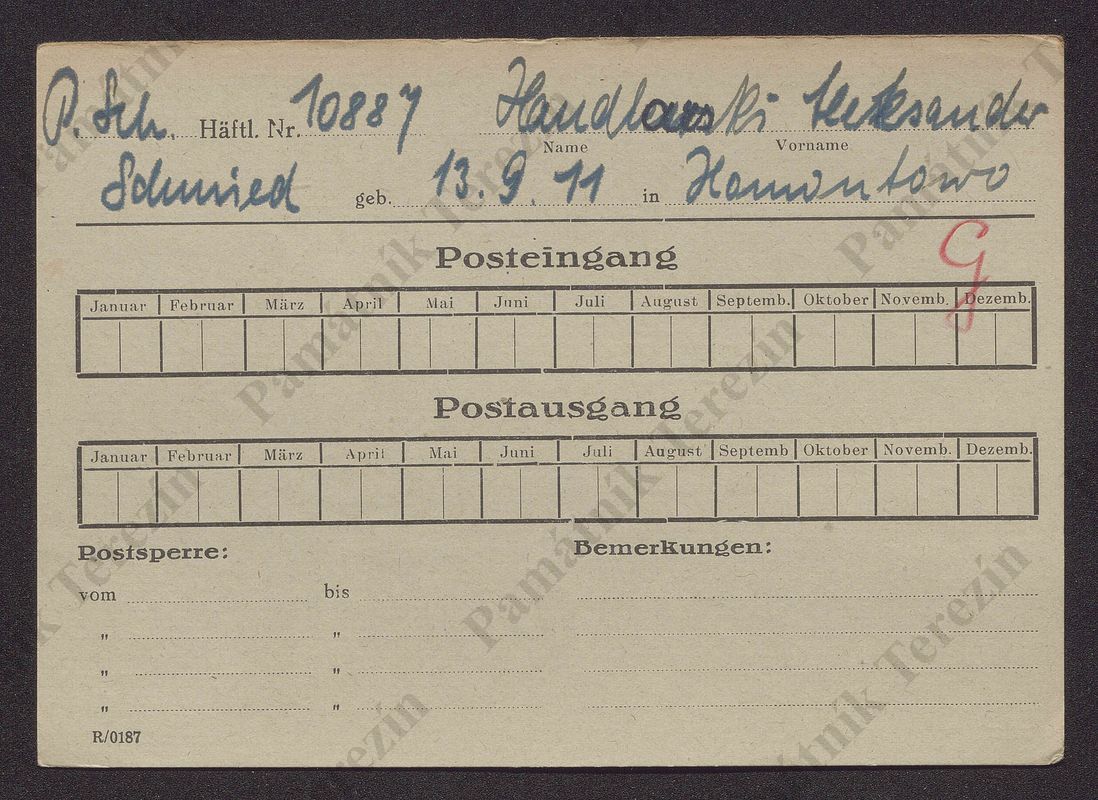 P. Sch. Häftl. Nr. 10887 Handlarski Aleksander
Name Vorname
Schmied geb. 13. 9. 11 in Hamontowo
Posteingang
G
Januar Februar März April Mai Juni Juli August Septemb. Oktober Novemb. Dezemb.
Postausgang
Januar Februar März April Mai Juni Juli August Septemb Oktober Novemb. Dezemb.
Postsperre: Bemerkungen:
vom bis
" "
" "
" "
R/0187
Památník Terezín